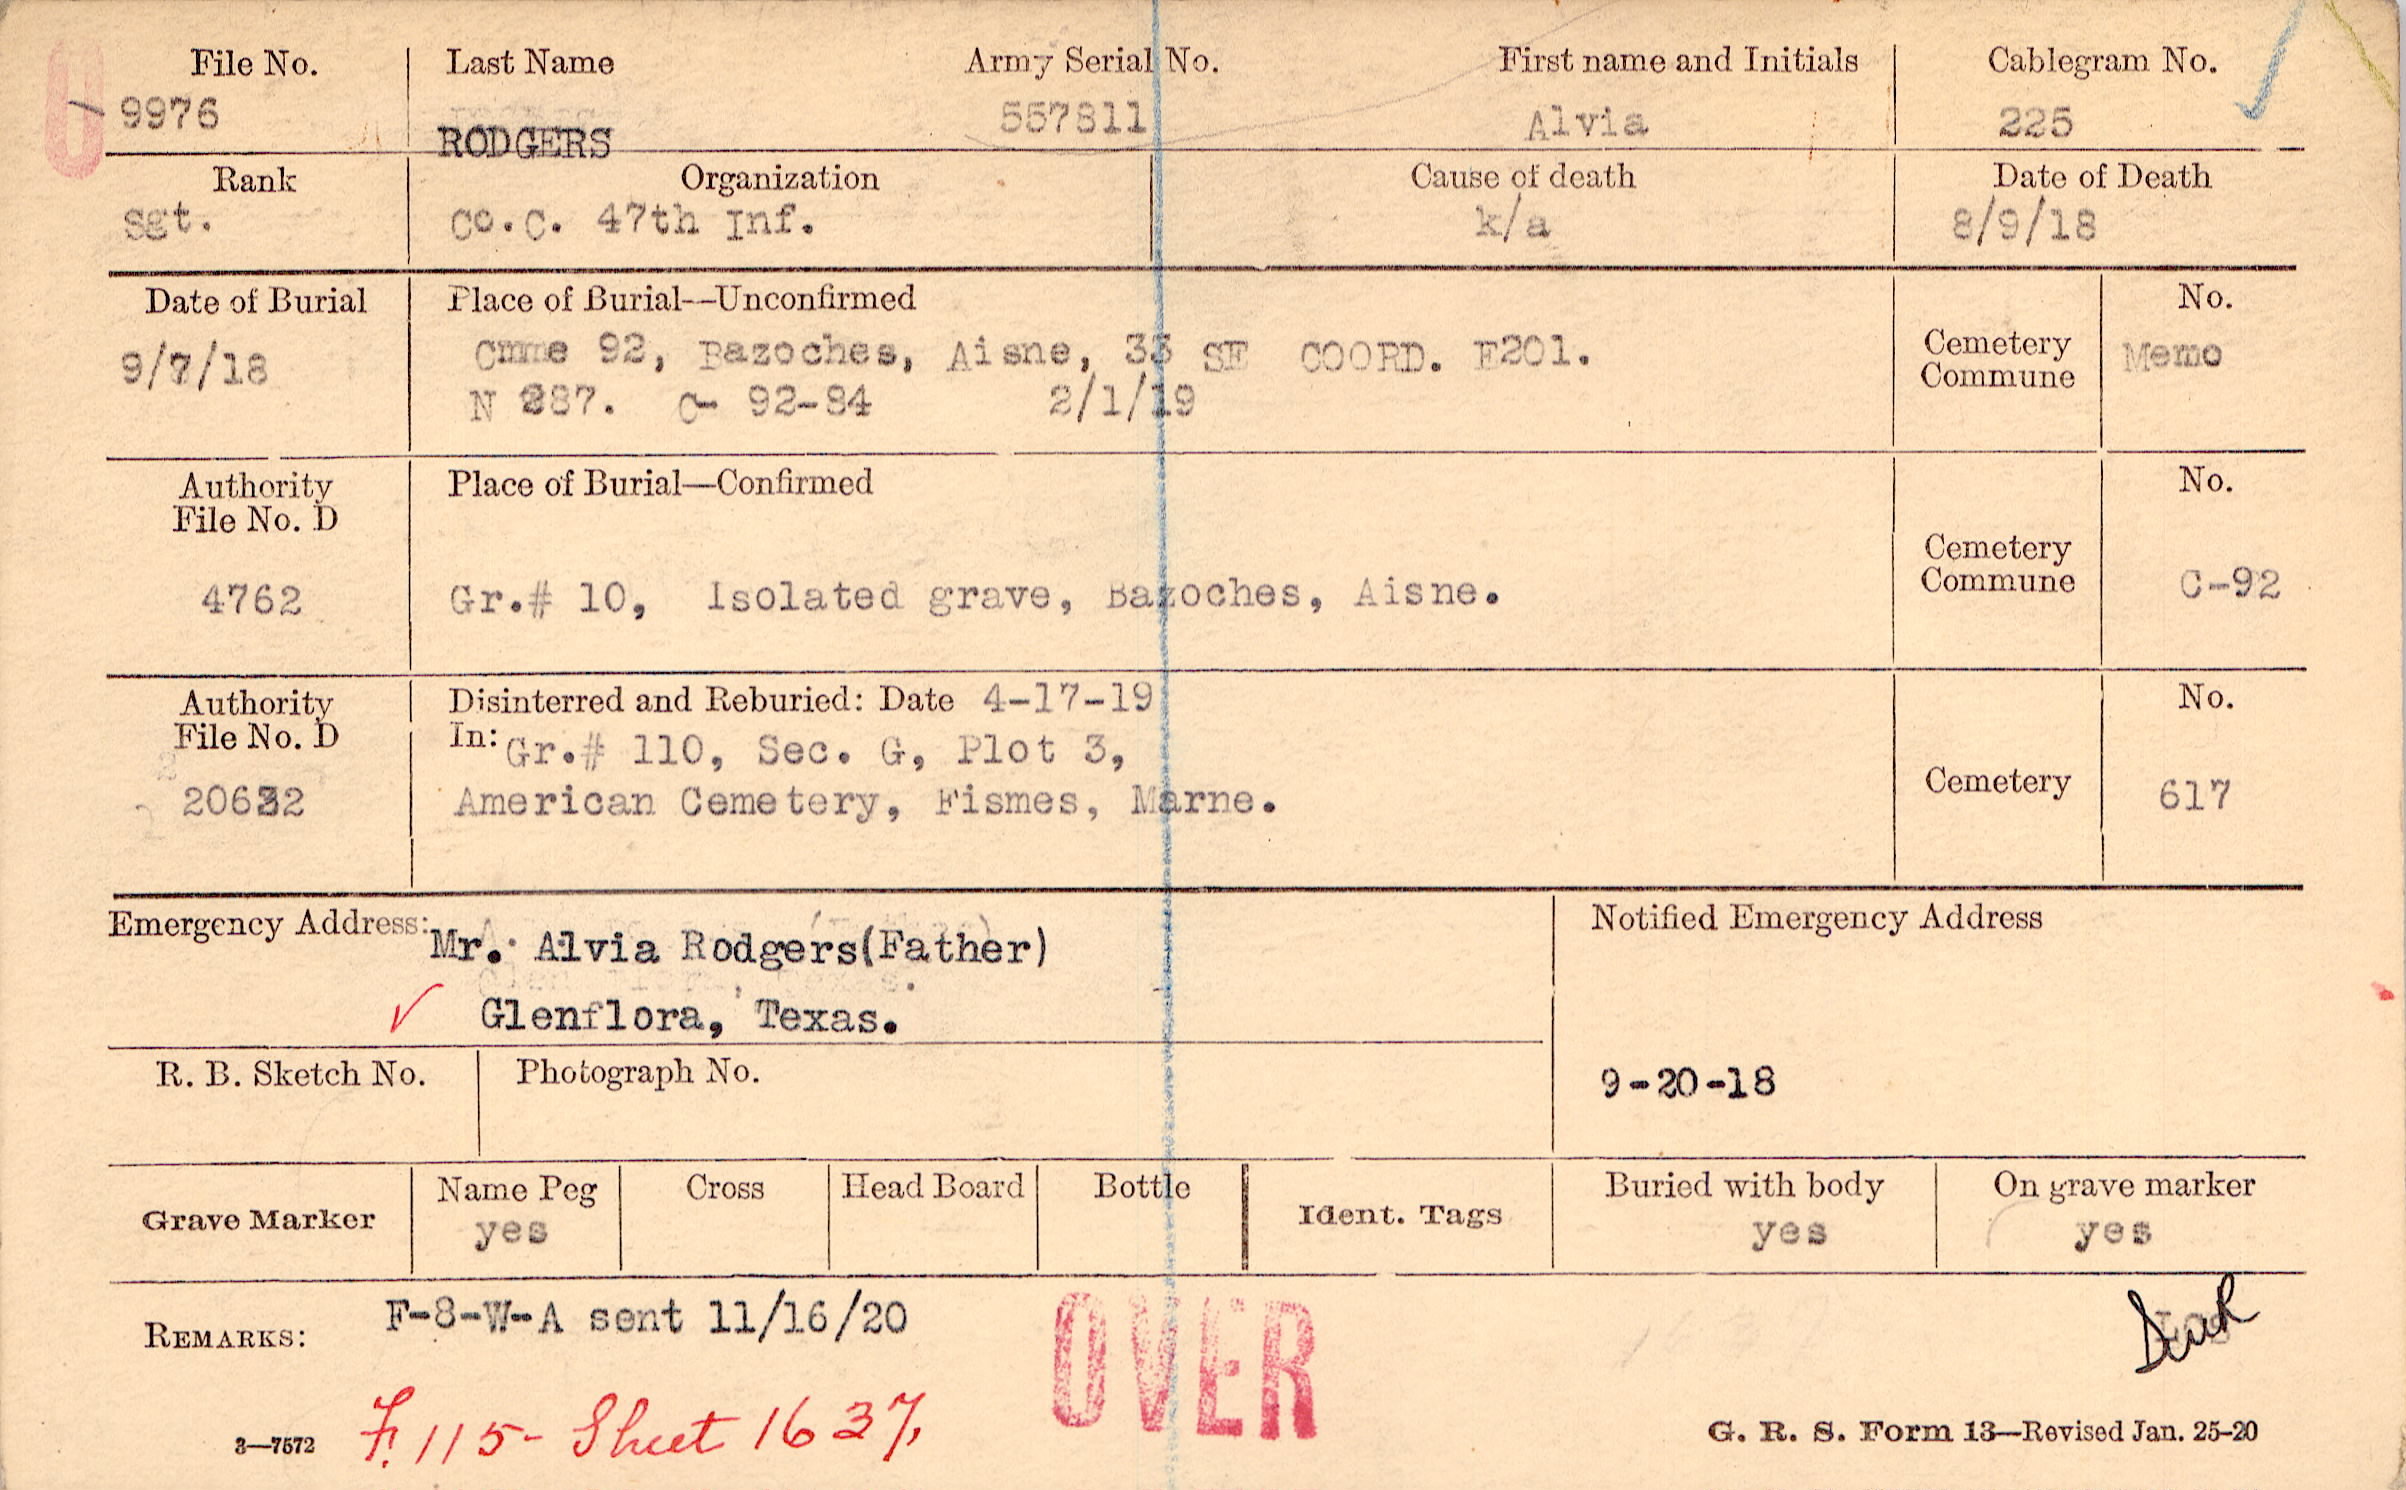 File No. Last Name Army Serial No. First name and Initials Cablegram No.
9976 RODGERS 557811 Alvia 225
Rank Organization Cause of death Date of Death
Sgt. Co.C. 47th Inf. k/a 8/9/18
Date of Burial Place of Burial—Unconfirmed No.
9/7/18 Cmme 92, Bazoches, Aisne, 33 SE COORD. E201. Cemetery Commune Memo
N 287. C- 92-84 2/1/19
Authority File No. D Place of Burial—Confirmed No.
4762 Gr.# 10, Isolated grave, Bazoches, Aisne. Cemetery Commune C-92
Authority File No. D Disinterred and Reburied: Date 4-17-19 No.
In: Gr.# 110, Sec. G, Plot 3,
20632 American Cemetery, Fismes, Marne. Cemetery 617
Emergency Address: Mr. Alvia Rodgers(Father) Notified Emergency Address
Glenflora, Texas.
R. B. Sketch No. Photograph No. 9-20-18
Grave Marker Name Peg Cross Head Board Bottle Ident. Tags Buried with body On grave marker
yes yes yes
REMARKS: F-8-W-A sent 11/16/20
OVER
3—7572 F. 115- Sheet 1637, G. R. S. Form 13—Revised Jan. 25-20